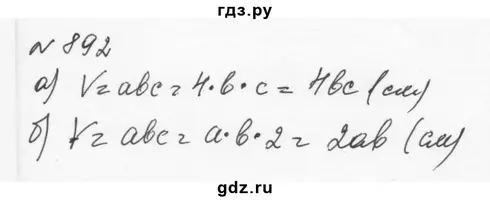 гдз.ру
№ 892
а) V = abc = 4·b·c = 4bc (см)
б) V = abc = a·b·2 = 2ab (см)
gdz.ru